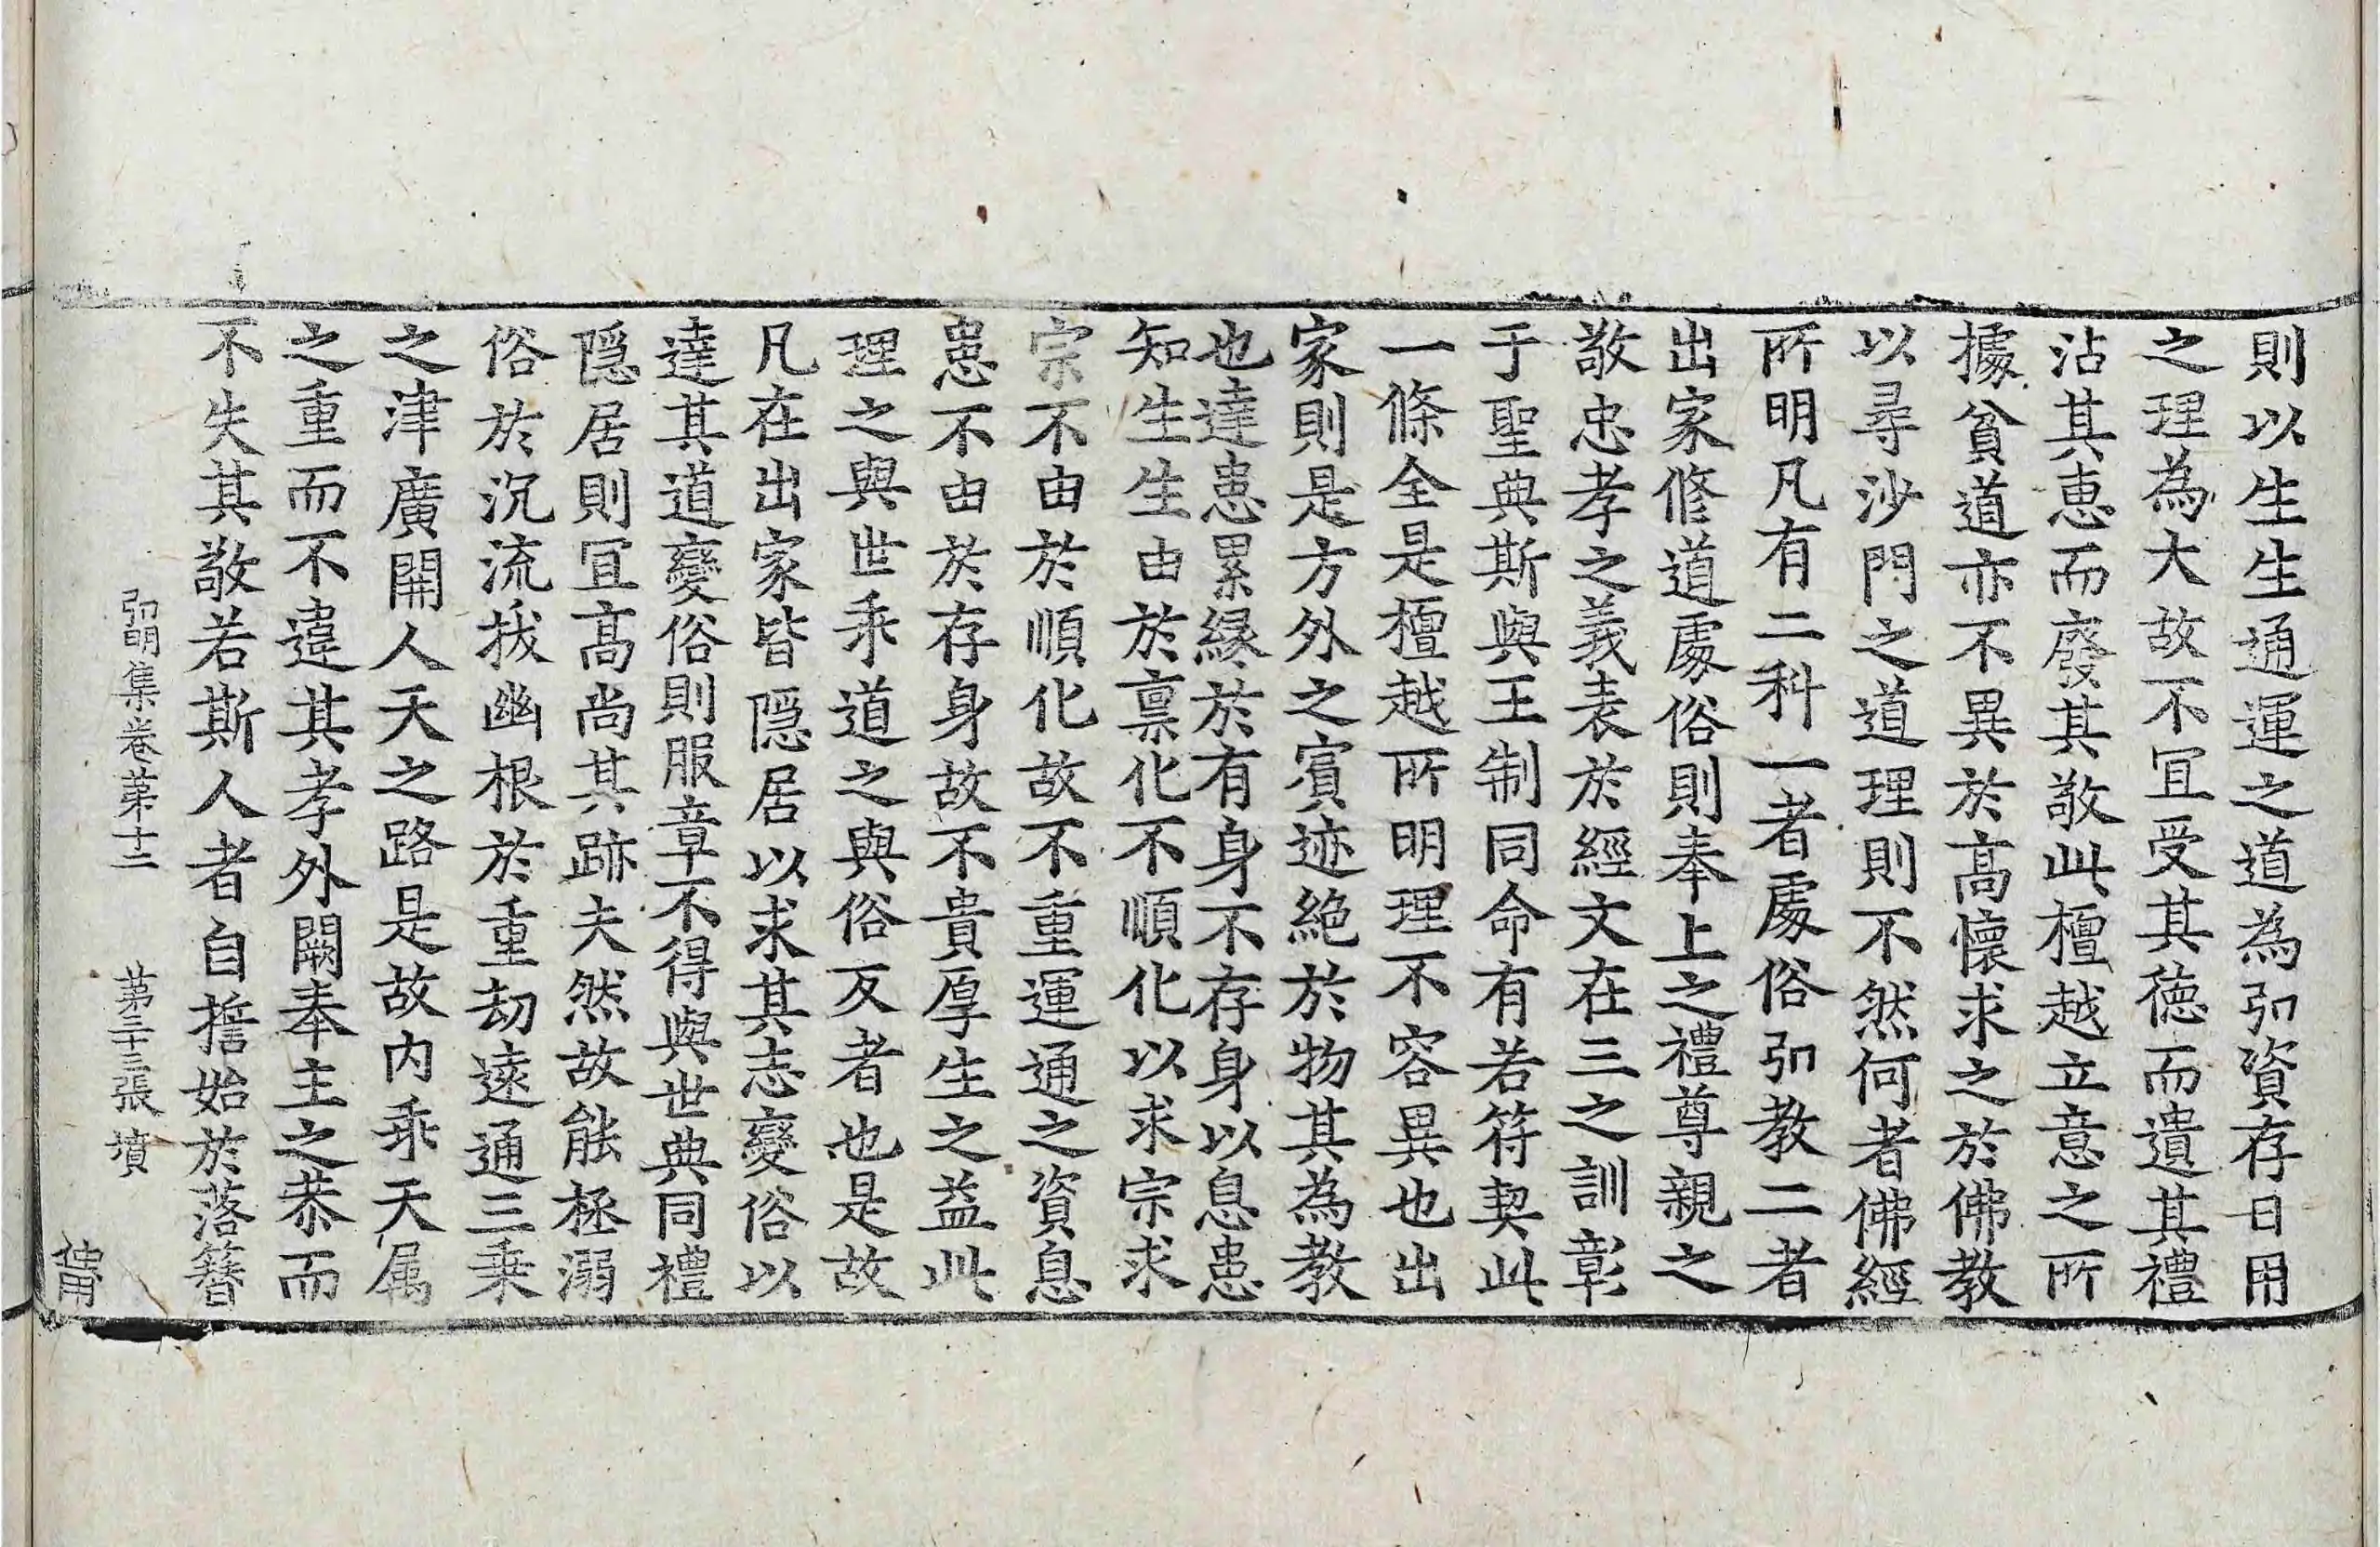 則以生生通運之道為弘資存日用
之理為大故不冝受其徳而遺其禮
沾其惠而廢其敬此檀越立意之所
據貧道亦不異於髙懷求之於佛教
以尋沙門之道理則不然何者佛經
所明凡有二科一者處俗弘教二者
出家修道處俗則奉上之禮尊親之
敬忠孝之義表於經文在三之訓彰
于聖典斯與王制同命有若符契此
一條全是檀越所明理不容異也出
家則是方外之賓迹絶於物其為教
也達患累縁於有身不存身以息患
知生生由於禀化不順化以求宗求
宗不由於順化故不重運通之資息
患不由於存身故不貴厚生之益此
理之與世乖道之與俗反者也是故
凡在出家皆隠居以求其志變俗以
達其道變俗則服章不得與世典同禮
隠居則冝髙尚其跡夫然故能拯溺
俗於沉流拔幽根於重劫遠通三乗
之津廣開人天之路是故内乖天属
之重而不違其孝外闕奉主之恭而
不失其敬若斯人者自誓始於落簪
弘明集卷苐十二 苐二十三張 墳